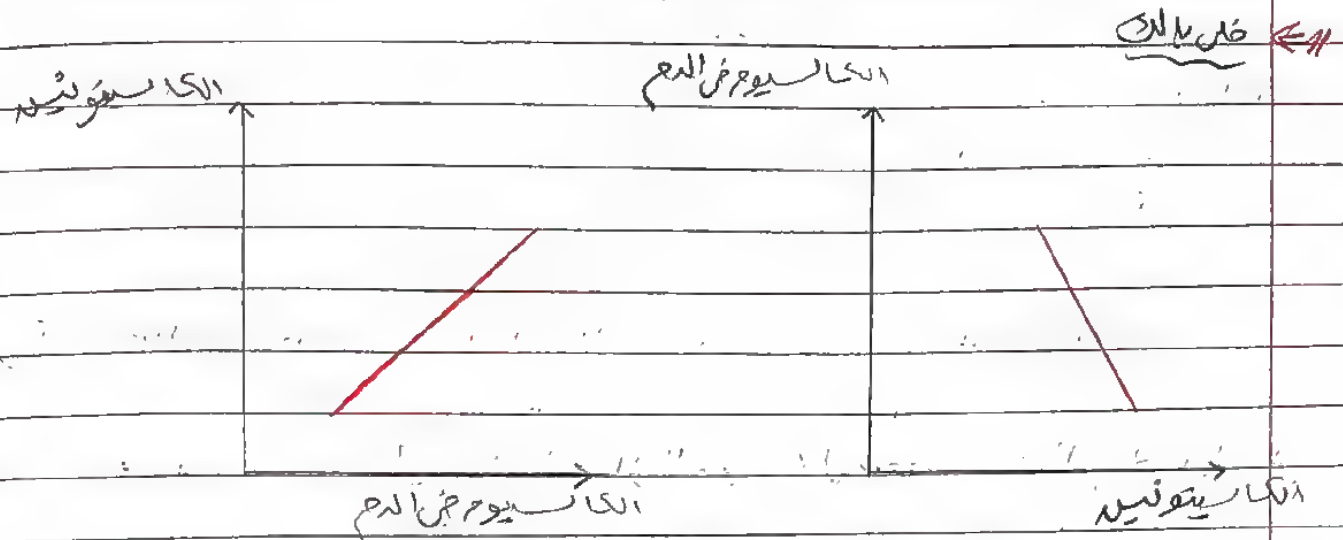 خلي بالك
الكالسيوم في الدم
الكالسيتونين
الكالسيتونين
الكالسيوم في الدم